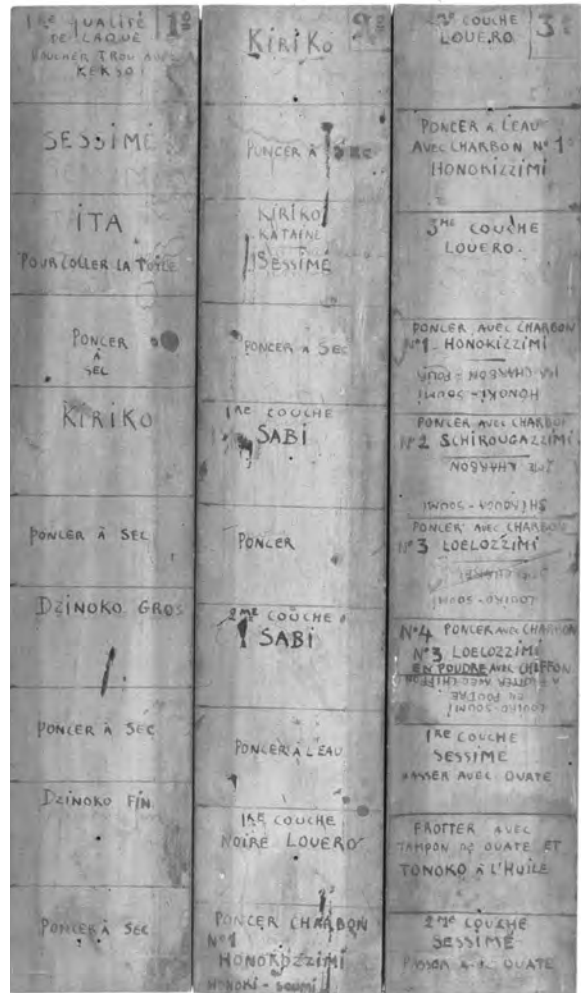 1RE QUALITÉ 1º
DE LAQUE
BOUCHER TROU AVEC
KEKSO
SESSIMÉ
ITA
POUR COLLER LA TOILE
PONCER
À
SEC
KIRIKO
PONCER À SEC
DZINOKO GROS
PONCER À SEC
DZINOKO FIN
PONCER À SEC
KIRIKO 2º
PONCER À SEC
KIRIKO
KATAINE
SESSIMÉ
PONCER À SEC
1RE COUCHE
SABI
PONCER
2ME COUCHE
SABI
PONCER À L'EAU
1RE COUCHE
NOIRE LOUERO
PONCER CHARBON
Nº1
HONOKIZZIMI
HONOKI-SOUMI
2ME COUCHE 3º
LOUERO.
PONCER À L'EAU
AVEC CHARBON Nº 1
HONOKIZZIMI
3ME COUCHE
LOUERO.
PONCER AVEC CHARBON
Nº1 - HONOKIZZIMI
CHARBON - POUR
HONOKI - SOUMI
PONCER AVEC CHARBON
Nº2 SCHIROUGAZZIMI
2ME CHARBON
SHIROUGA - SOUMI
PONCER AVEC CHARBON
Nº3 LOELOZZIMI
LOUIKO - SOUMI
Nº4 PONCER AVEC CHARBON
Nº3 LOELOZZIMI
EN POUDRE AVEC CHIFFON
A FROTTER AVEC CHIFFON
EN POUDRE
LOUIKO - SOUMI
1RE COUCHE
SESSIMÉ
PASSER AVEC OUATE
FROTTER AVEC
TAMPON DE OUATE ET
TONOKO À L'HUILE
2ME COUCHE
SESSIMÉ
PASSER AVEC OUATE